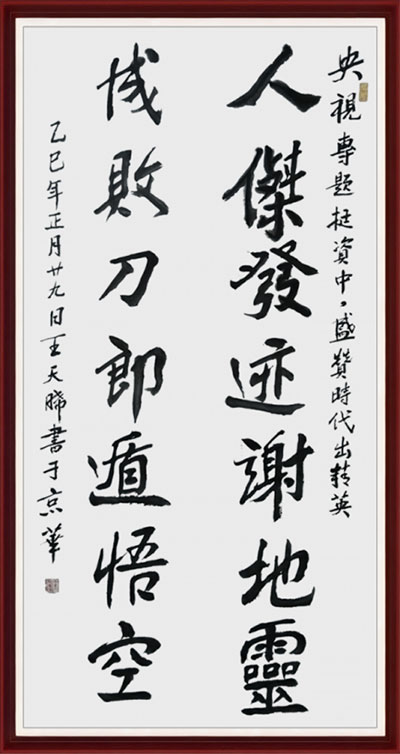 央視專題挺資中，盛贊時代出精英
人傑發迹謝地靈
成敗刀郎遁悟空
乙巳年正月廿九日王天晞書于京華